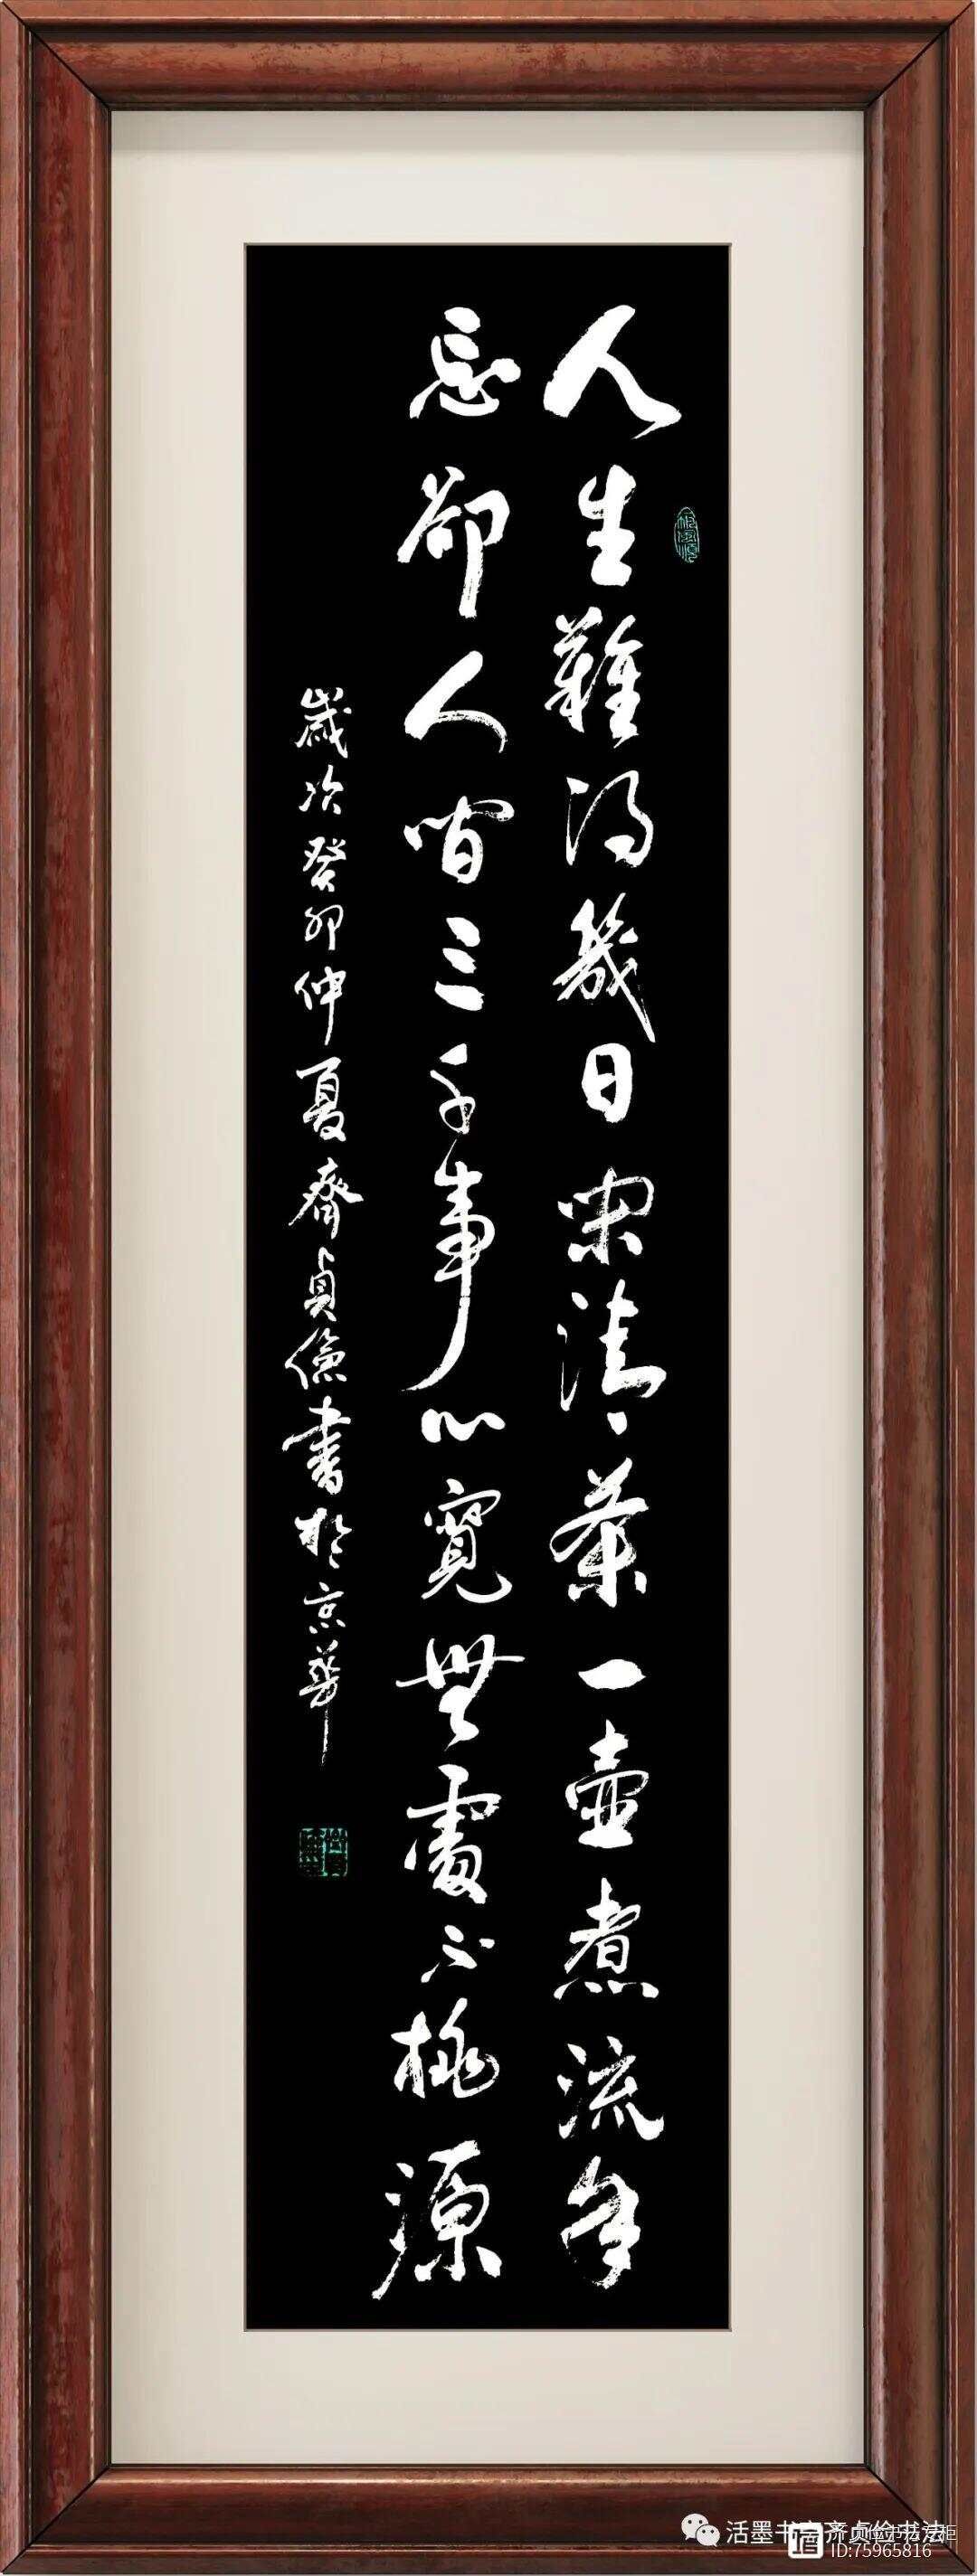 人生難得幾日閑清茶一壺煮流年
忘卻人間三千事心寬無處不桃源
歲次癸卯仲夏齊貞儉書於京華
活墨书痴齐贞俭书法
ID:75965816